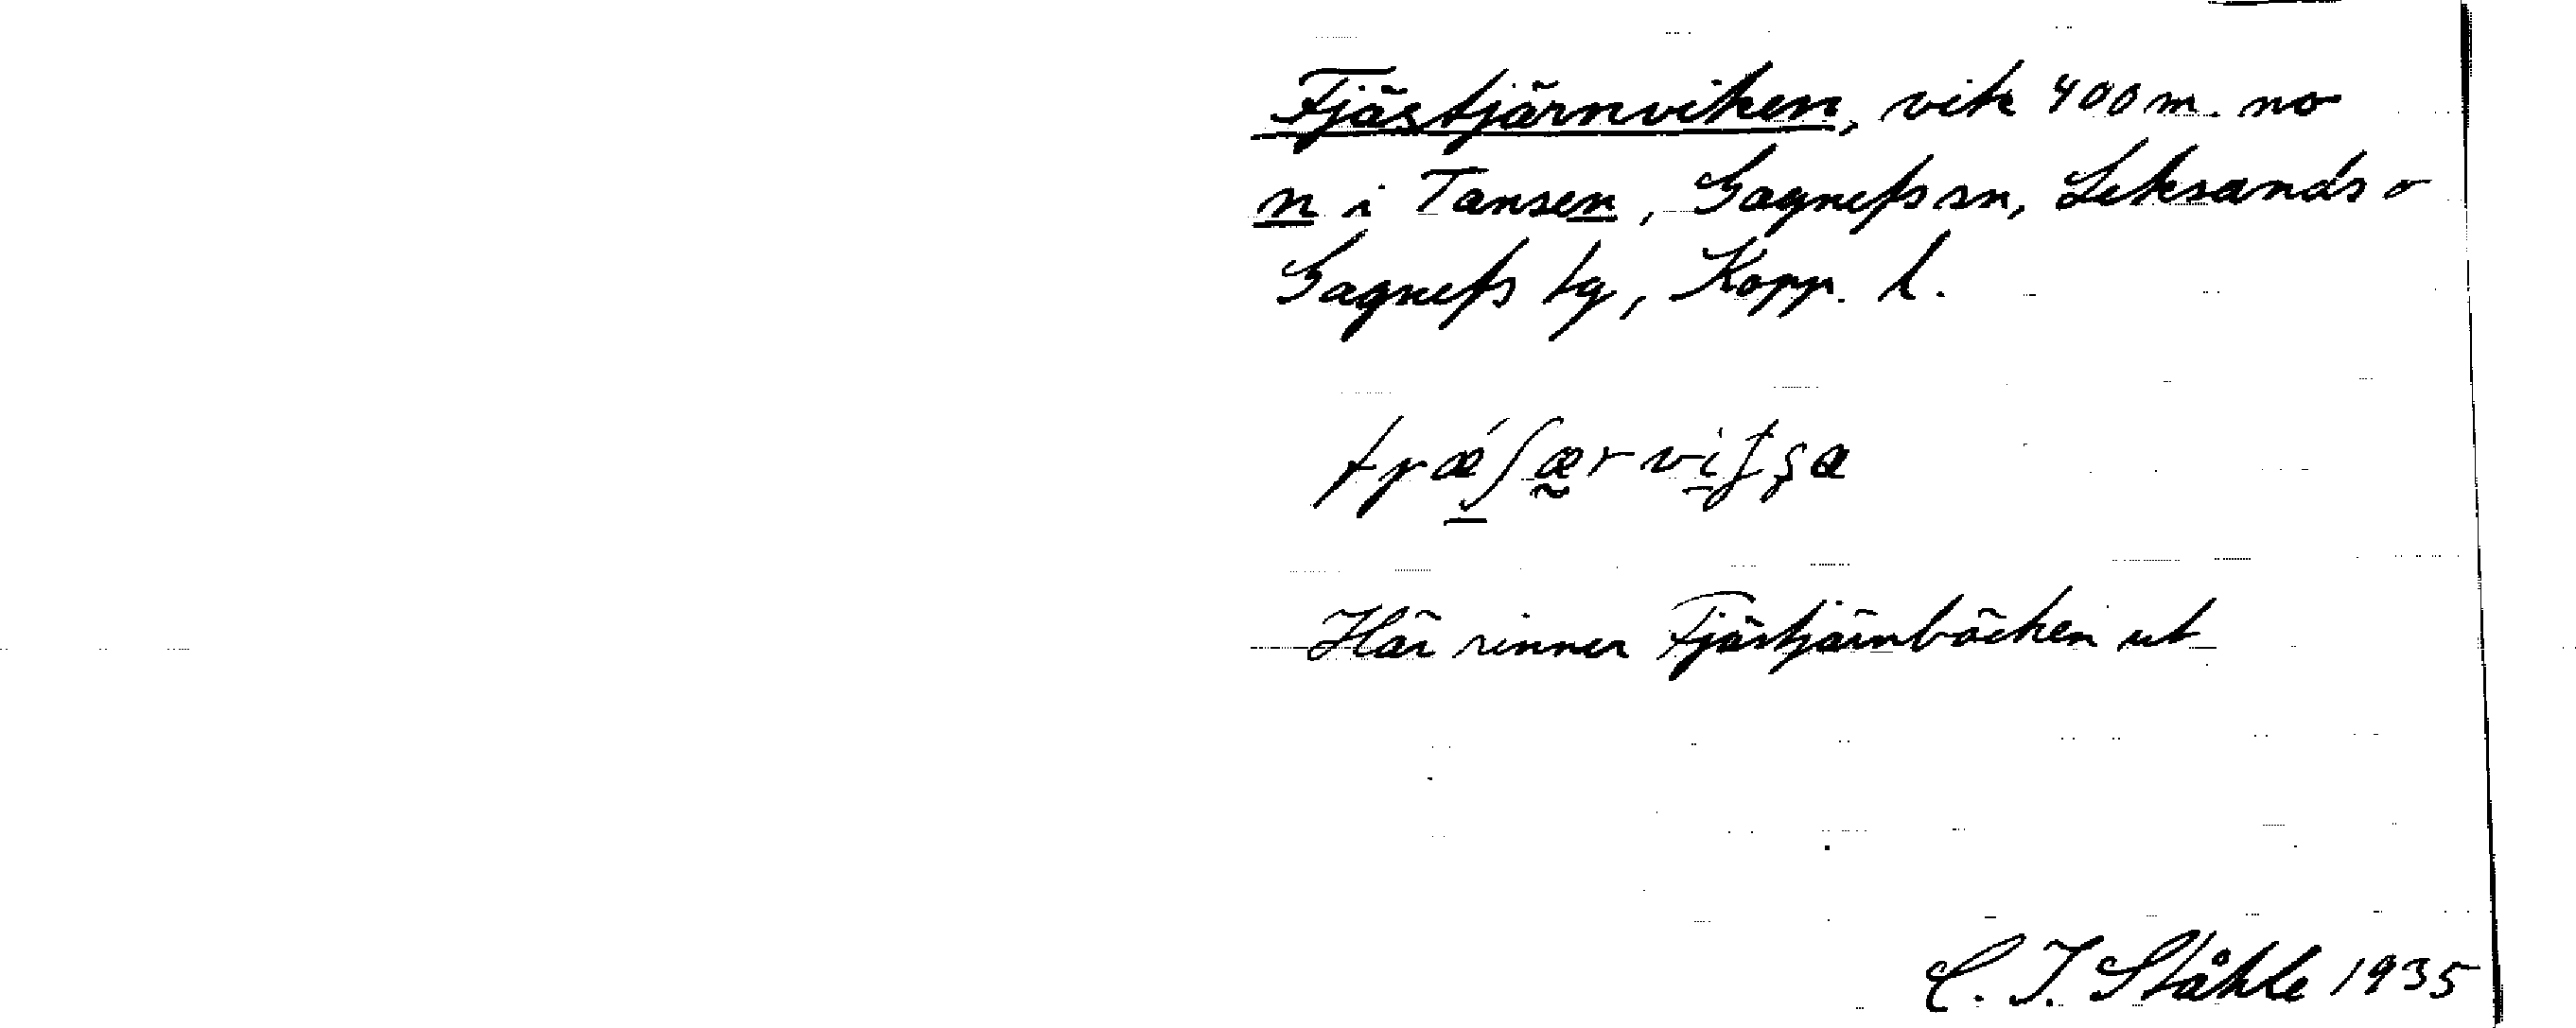 Fjästjärnviken, vik 400 m. no
n i Tansen, Gagnefs sn, Leksands o
Gagnefs tg, Kopp. l.
Här rinner Fjästjärnbäcken ut
C. I. Ståhle 1935